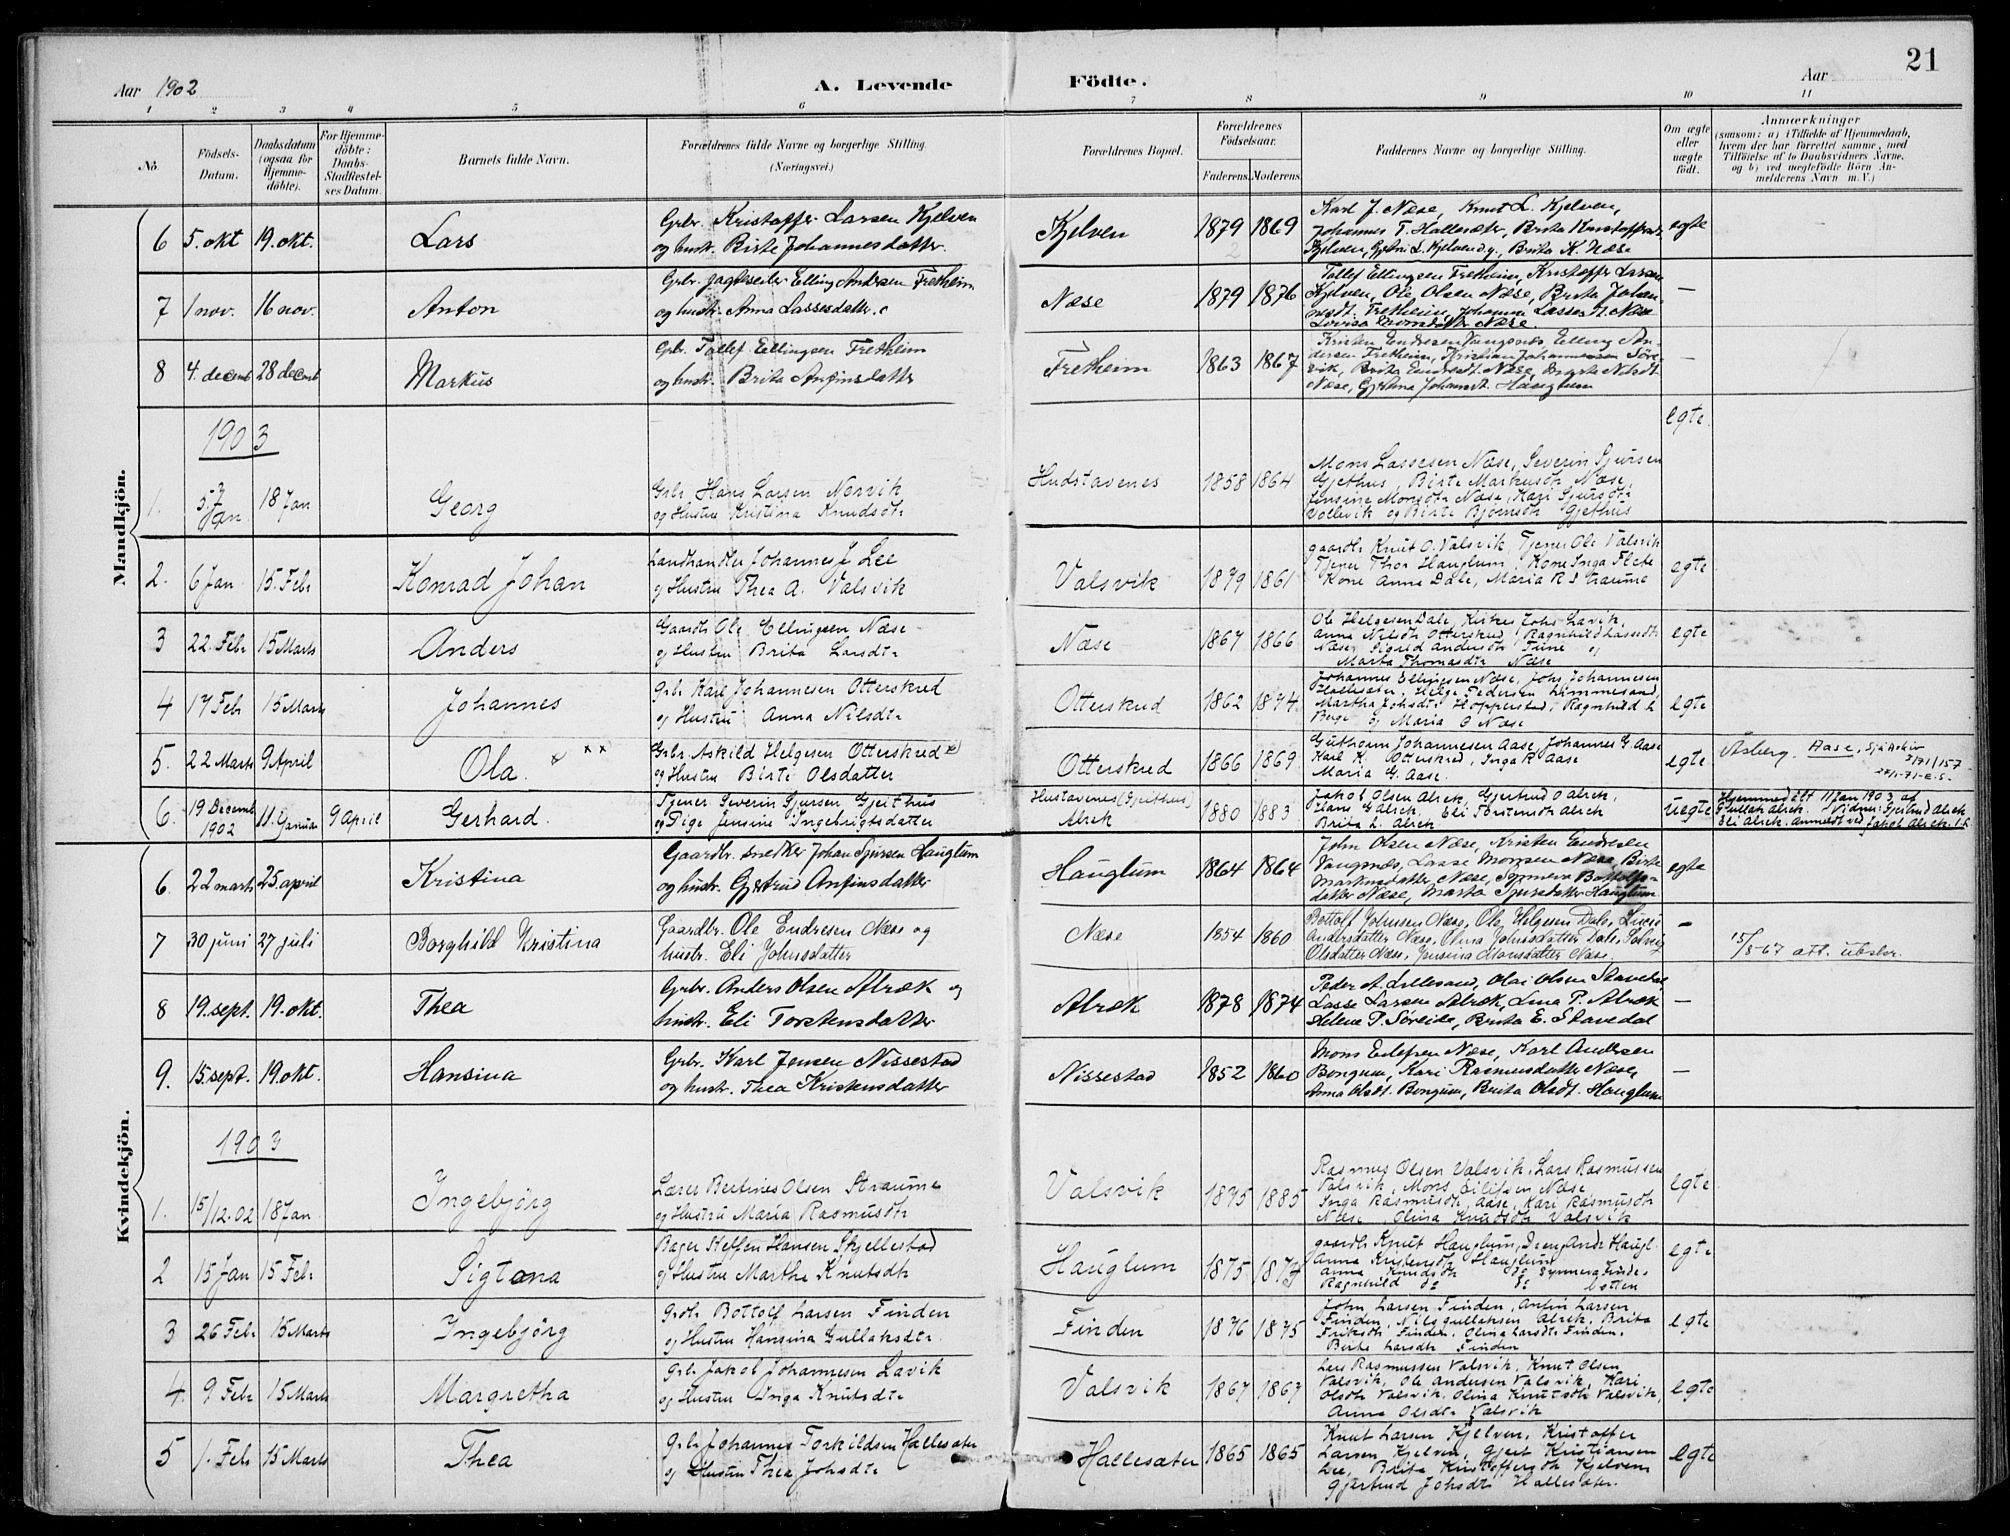 21
Aar 1902
A. Levende Födte.
Aar
1 2 3 4 5 6 7 8 9 10 11
No.
Födsels-Datum.
Daabsdatum (ogsaa for Hjemme-döbte).
For Hjemme-döbte: Daabs-Stadfæstel-ses Datum.
Barnets fulde Navn.
Forældrenes fulde Navne og borgerlige Stilling.
(Næringsvei.)
Forældrenes Bopæl.
Forældrenes Födselsaar.
Faderens. Moderens.
Faddernes Navne og borgerlige Stilling.
Om ægte eller uægte födt.
Anmærkninger
(saasom: a) i Tilfælde af Hjemmedaab,
hvem der har forrettet samme, med
Tilföielse af to Daabsvidners Navne,
og b) ved uægtefödte Börn An-
melderens Navn m. V.)
Mandkjön.
6 5. okt 19. okt. Lars Gbr. Kristoffer Larsen Kjelven
og hustr. Birte Johannesdatter. Kjelven 1879 1869 Karl J. Næse, Knut L. Kjelven,
Johannes T. Hallesæter, Brita Kristoffersdt.
Kjelven, Brita K. Næse egte
7 1 nov. 16 nov. Anton Gbr. jagtseiler Elling Andersen Fretheim
og hustr. Anna Lassesdatter. Næse 1879 1876 Tollef Ellingsen Fretheim, Kristoffer Larsen
Kjelven, Ole Olsen Næse, Brita Johan-
nesdt. Fretheim, Johanna Lasses dt. Næse
Næse. —
8 4. decemb 28 decemb Markus Gbr. Tollef Ellingsen Fretheim
og hustr. Brita Anfinsdatter Fretheim 1863 1867 Kristen Endresen Vangsnes, Elling An-
dersen Fretheim, Kristian Johannessen Söre-
vik, Brita Endresdt. Næse, Nilsdt.
Næse, Gjertina Johannesdt. Hauglum —
1903
egte.
1. 5 Jan 18 Jan Georg Gbr Hans Larsen Nörvik
og Hustru Kristina Knudsdtr Hustavenes 1858 1864 Mons Lassesen Næse, Severin Sjursen
Gjethus, Birte Markusdtr Næse,
Jensine Monsdtr Næse, Kari Sjursdtr
Vollevik og Birte Björnsdtr Gjethus
2. 6 Jan 15. Febr Konrad Johan Landhandler Johannes J Lee
og Hustru Thea A. Valsvik Valsvik 1879 1861 gaardbr Knut O. Valsvik, Tjener Ole Valsvik
Tjener Thor Hauglum, Kone Inga Flete
Kone Anna Dale, Maria R. Straume egte
3 22. Febr 15 Marts Anders Gaardbr Ole Ellingsen Næse
og Hustru Brita Larsdtr Næse 1867 1866 Ole Helgesen Dale, Johs Lavik,
Anna Nilsdtr Otterskred, Ragnhild Lassedtr
Næse, Sigrid Andersdtr Tune og
Marta Thomasdtr Næse egte
4 17 Febr 15 Marts Johannes Gbr Karl Johannesen Otterskred
og Hustru Anna Nilsdtr Otterskred 1862 1874 Johannes Ellingsen Næse, Johs Johannesen
Hallesæter, Helge Pedersen Limmesand,
Martha Johsdtr Hopperstad, Ragnhild L
Berge og Maria O Næse egte
5. 22 Marts 9 April Ola. Gbr. Askild Helgesen Otterskred
og Hustru Birte Olsdatter Otterskred 1866 1869 Guthorm Johannesen Aase, Johannes G. Aase
Karl K. Otterskred, Inga K Aase
Maria G. Aase. egte Åsberg. Aase.
6. 19 Decemb 1902 11 Januar 9 April Gerhard. Tjener Severin Sjursen Gjeithus
og Pige Jensine Ingebrigtsdatter Hustavenes (Gjeithus)
Alrek 1880 1883 Jakob Olsen Alrek, Gjertrud O Alrek,
Hans G Alrek, Eli Torstensdtr Alrek
Brita L. Alrek uegte Hjemmedöbt 11 Jan 1903 af
Gullak Alrek. Vidner: Gjertrud Alrek
Eli Alrek. Anmeldt ved Jakob Alrek.
Kvindekjön.
6. 22 marts 25. april Kristina Gaardbr. snedker Johan Sjursen Hauglum
og hustr. Gjertrud Anfinsdatter Hauglum 1864 1864 John Olsen Næse, Kristen Endresen
Vangsnæs, Lasse Monsen Næse, Birte
Markusdatter Næse, Synneva Bottolfs-
datter Næse, Marta Sjursdatter Hauglum egte
7 30 juni 27 juli Borghild Kristina Gaardbr. Ole Endresen Næse og
hustr. Eli Johnsdatter Næse 1854 1860 Bottolf Johnsen Næse, Ole Helgesen Dale, Lucie
Andersdatter Næse, Olina Johnsdatter Dale, Solveig
Olsdatter Næse, Jensina Monsdatter Næse. — 15/8-67 att. utskr.
8 19. sept. 19. okt. Thea Gbr. Anders Olsen Alræk og
hustr. Eli Torstensdatter Alræk 1878 1874 Peder A. Lillesand, Olai Olsen Stavedal
Lasse Larsen Alræk, Lina P. Alræk
Helene P. Söreide, Brita E. Stavedal —
9. 15. sept. 19. okt. Hansina Gbr. Karl Jensen Nissestad
og hustr. Thea Kristensdatter Nissestad 1852 1860 Mons Eilefsen Næse, Karl Andersen
Bongum, Kari Rasmusdatter Næse,
Anna Olsdt. Bongum, Brita Olsdt. Hauglum —
1903
1. 15/12.02 18 Jan Ingebjörg Lærer Bertines Olsen Straume
og Hustru Maria Rasmusdtr Valsvik 1875 1885 Rasmus Olsen Valsvik, Lars Rasmussen
Valsvik, Mons Eilifsen Næse
Inga Rasmusdtr Aase, Kari Rasmusdtr
Næse, Olina Knudsdtr Valsvik egte
2 15 Jan 15 Febr Sigtona Bager Steffen Hansen Skjellestad
og Hustru Marthe Knutsdtr Hauglum 1875 gaardbr Knut Hauglum, Dreng Anders Haugl.
Anna Kristensdtr Hauglum
Anna Knudsdtr do Synneva Finde-
Ragnhild do do botten egte
3 26 Febr 15 Marts Ingebjörg Grbr Bottolf Larsen Finden
og Hustru Hansina Gullaksdtr. Finden 1876 1875 John Larsen Finden, Anfin Larsen
Finden, Nils Gullaksen Alrek, Brita
Eriksdtr Finden, Olina Larsdtr Finden,
Birte Larsdtr Finden egte
4. 9 Febr 15 Marts Margretha Gbr Jakob Johannesen Lavik
og Hustru Inga Knutsdtr Valsvik 1867 1867 Lars Rasmussen Valsvik, Knut Olsen
Valsvik, Ole Andersen Valsvik, Kari
Olsdtr Valsvik, Olina Knutsdtr Valsvik,
Anna Olsdtr Valsvik egte
5 1. Febr 15 Marts Thea Gbr Johannes Torkildsen Hallesæter
og Hustru Thea Johsdtr Hallesæter 1865 1865 Knut Larsen Kjelven, Kristoffer
Larsen Kjelven, Gjert Kristiansen
Lee, Brita Kristoffersdtr Kjelven
Gjertrud Johsdtr Hallesæter. egte